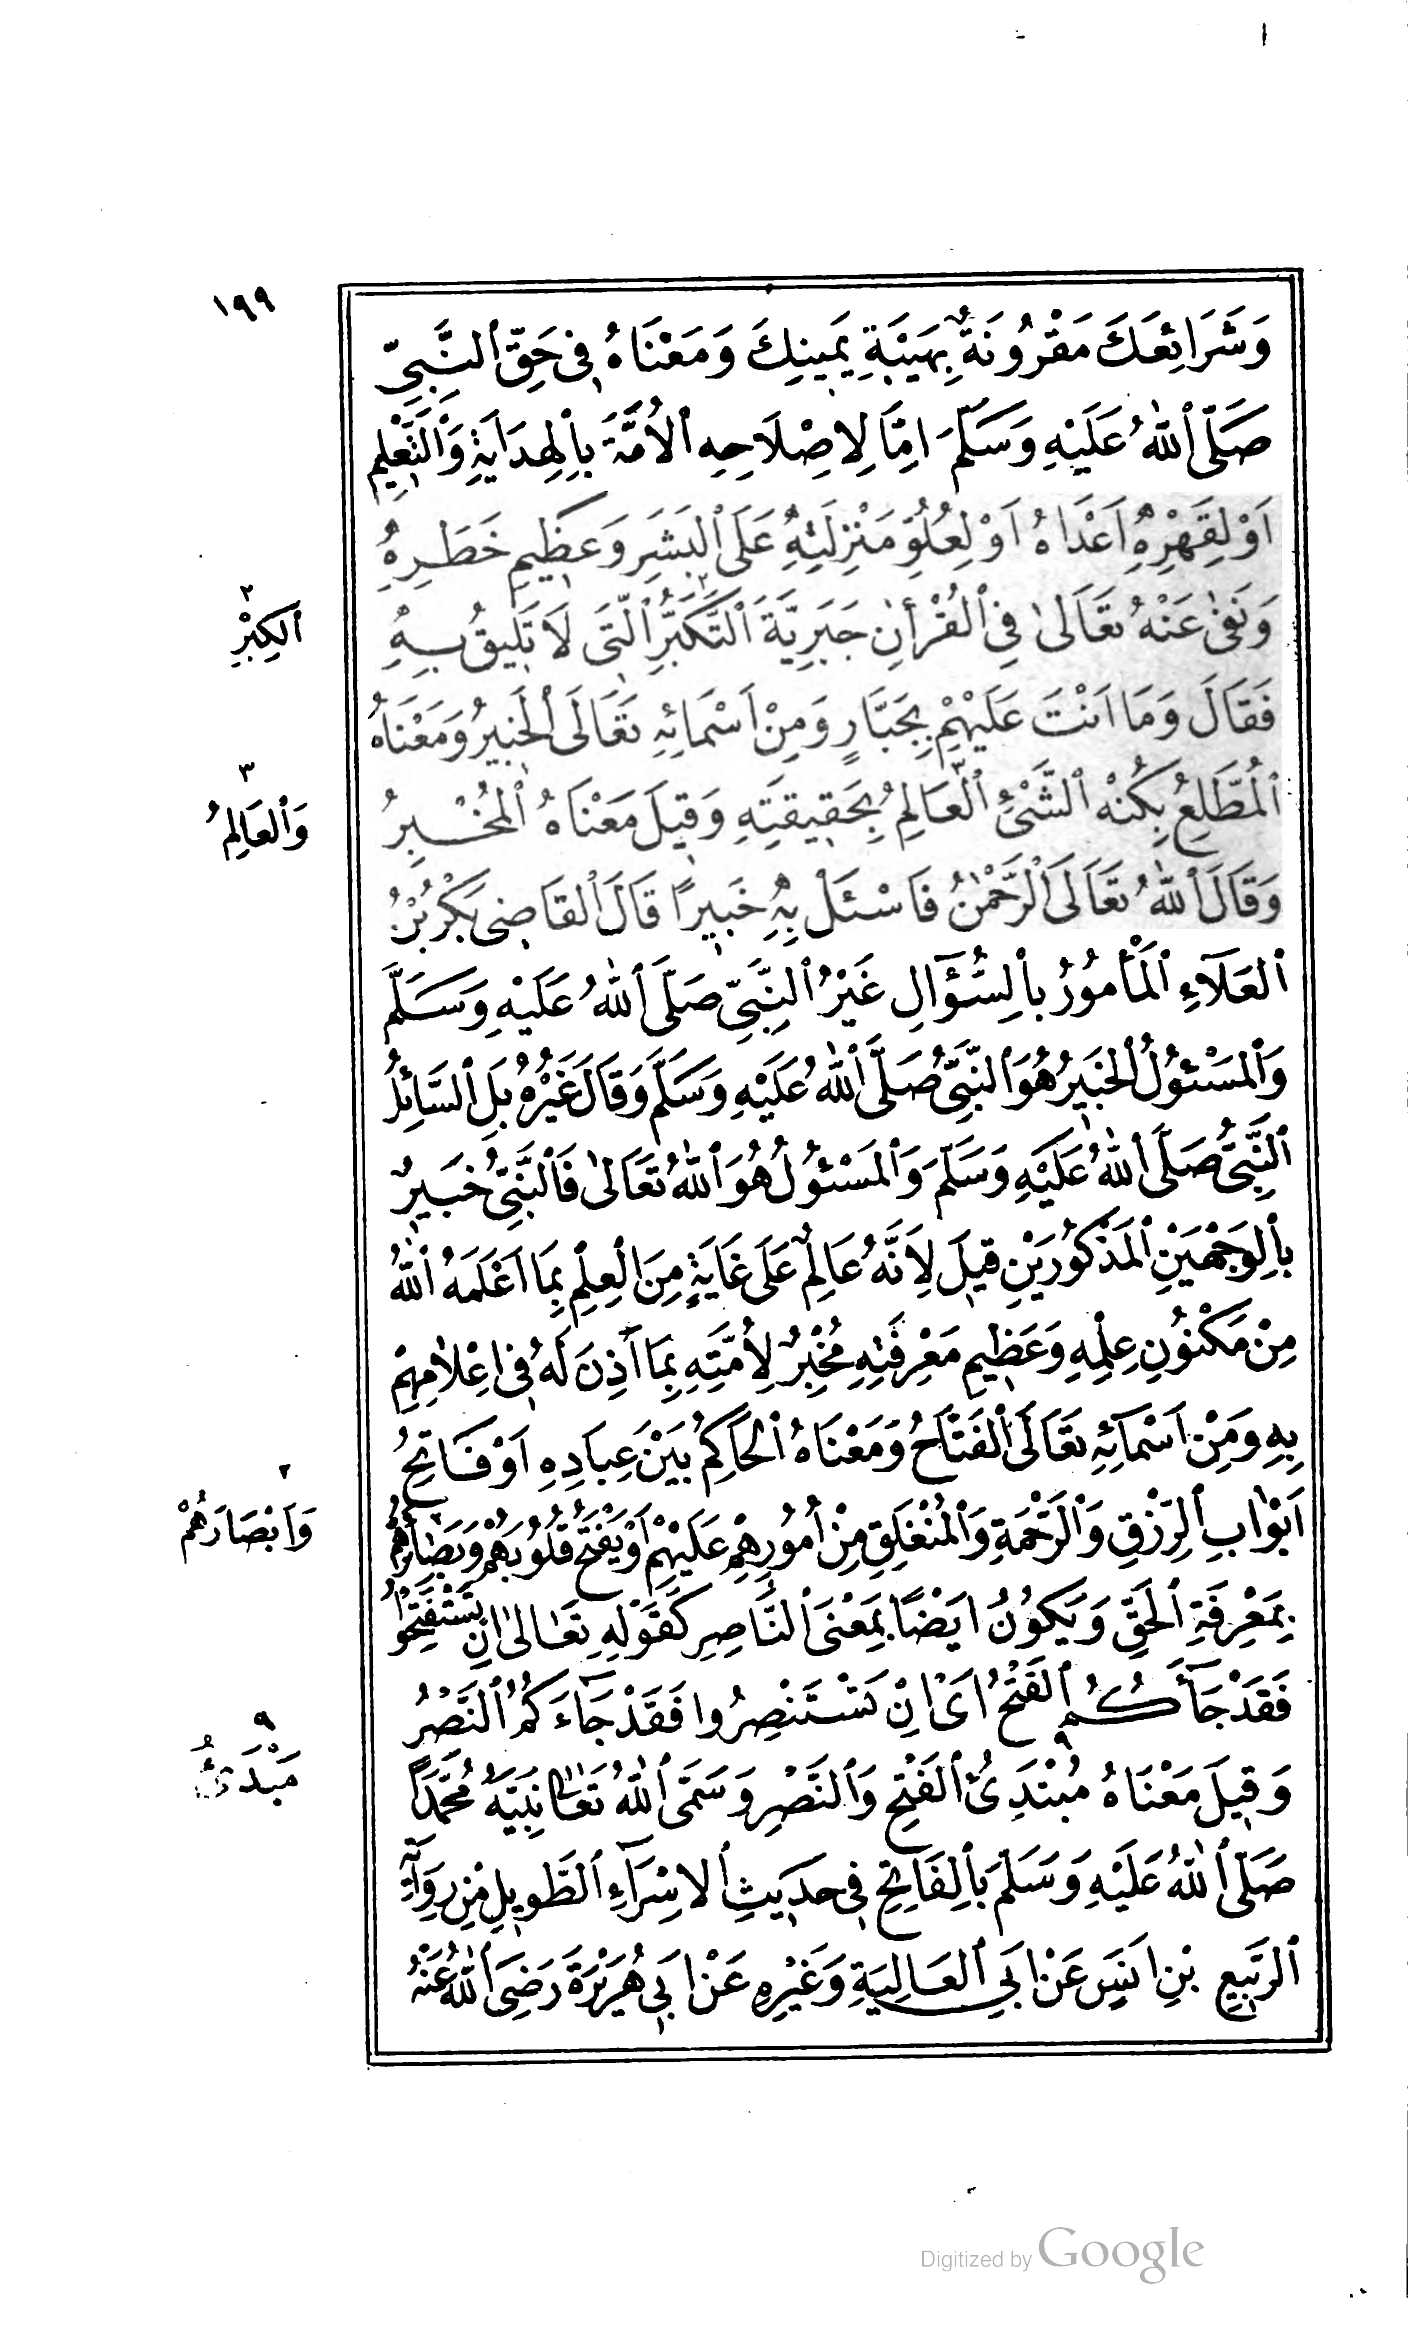 ١٩٩
وَشَرَائِعَكَ مَقْرُونَةٌ بِهَيْبَةِ يَمِينِكَ وَمَعْنَاهُ فِى حَقِّ ٱلنَّبِىِّ
صَلَّى ٱللّٰهُ عَلَيْهِ وَسَلَّمَ اِمَّا لِاِصْلَاحِهِ ٱلْاُمَّةَ بِٱلْهِدَايَةِ وَٱلتَّعْلِيمِ
اَوْ لِقَهْرِهِ اَعْدَاءَهُ اَوْ لِعُلُوِّ مَنْزِلَتِهِ عَلَى ٱلْبَشَرِ وَعَظِيمِ خَطَرِهِ
وَنَفٰى عَنْهُ تَعَالٰى فِى ٱلْقُرْاٰنِ جَبَرِيَّةَ ٱلتَّكَبُّرِ ٱلَّتِى لَا تَلِيقُ بِهِ
٢
ٱلْكِبْرِ
فَقَالَ وَمَا اَنْتَ عَلَيْهِمْ بِجَبَّارٍ وَمِنْ اَسْمَائِهِ تَعَالَى ٱلْخَبِيرُ وَمَعْنَاهُ
ٱلْمُطَّلِعُ بِكُنْهِ ٱلشَّىْءِ ٱلْعَالِمُ بِحَقِيقَتِهِ وَقِيلَ مَعْنَاهُ ٱلْمُخْبِرُ
٣
وَٱلْعَالِمُ
وَقَالَ ٱللّٰهُ تَعَالَى ٱلرَّحْمٰنُ فَاسْئَلْ بِهِ خَبِيرًا قَالَ ٱلْقَاضِى بَكْرُ بْنُ
ٱلْعَلَاءِ ٱلْمَأْمُورُ بِٱلسُّؤَالِ غَيْرُ ٱلنَّبِىِّ صَلَّى ٱللّٰهُ عَلَيْهِ وَسَلَّمَ
وَٱلْمَسْئُولُ ٱلْخَبِيرُ هُوَ ٱلنَّبِىُّ صَلَّى ٱللّٰهُ عَلَيْهِ وَسَلَّمَ وَقَالَ غَيْرُهُ بَلِ ٱلسَّائِلُ
ٱلنَّبِىُّ صَلَّى ٱللّٰهُ عَلَيْهِ وَسَلَّمَ وَٱلْمَسْئُولُ هُوَ ٱللّٰهُ تَعَالٰى فَٱلنَّبِىُّ خَبِيرٌ
بِٱلْوَجْهَيْنِ ٱلْمَذْكُورَيْنِ قِيلَ لِاَنَّهُ عَالِمٌ عَلَى غَايَةٍ مِنَ ٱلْعِلْمِ بِمَا اَعْلَمَهُ ٱللّٰهُ
مِنْ مَكْنُونِ عِلْمِهِ وَعَظِيمِ مَعْرِفَتِهِ مُخْبِرٌ لِاُمَّتِهِ بِمَا اُذِنَ لَهُ فِى اِعْلَامِهِمْ
بِهِ وَمِنْ اَسْمَآئِهِ تَعَالَى ٱلْفَتَّاحُ وَمَعْنَاهُ ٱلْحَاكِمُ بَيْنَ عِبَادِهِ اَوْ فَاتِحُ
اَبْوَابِ ٱلرِّزْقِ وَٱلرَّحْمَةِ وَٱلْمُنْغَلِقِ مِنْ اُمُورِهِمْ عَلَيْهِمْ اَوْ يَفْتَحُ قُلُوبَهُمْ وَبَصَائِرَهُمْ
٢
وَاَبْصَارَهُمْ
بِمَعْرِفَةِ ٱلْحَقِّ وَيَكُونُ اَيْضًا بِمَعْنَى ٱلنَّاصِرِ كَقَوْلِهِ تَعَالٰى اِنْ تَسْتَفْتِحُوا
فَقَدْ جَآءَكُمُ ٱلْفَتْحُ اَىْ اِنْ تَسْتَنْصِرُوا فَقَدْ جَآءَكُمُ ٱلنَّصْرُ
وَقِيلَ مَعْنَاهُ مُبْتَدِئُ ٱلْفَتْحِ وَٱلنَّصْرِ وَسَمَّى ٱللّٰهُ تَعَالٰى نَبِيَّهُ مُحَمَّدًا
٩
مَبْدَئُ
صَلَّى ٱللّٰهُ عَلَيْهِ وَسَلَّمَ بِٱلْفَاتِحِ فِى حَدِيثِ ٱلْاِسْرَآءِ ٱلطَّوِيلِ مِنْ رِوَايَةِ
ٱلرَّبِيعِ بْنِ اَنَسٍ عَنْ اَبِى ٱلْعَالِيَةِ وَغَيْرِهِ عَنْ اَبِى هُرَيْرَةَ رَضِىَ ٱللّٰهُ عَنْهُ
Digitized by Google